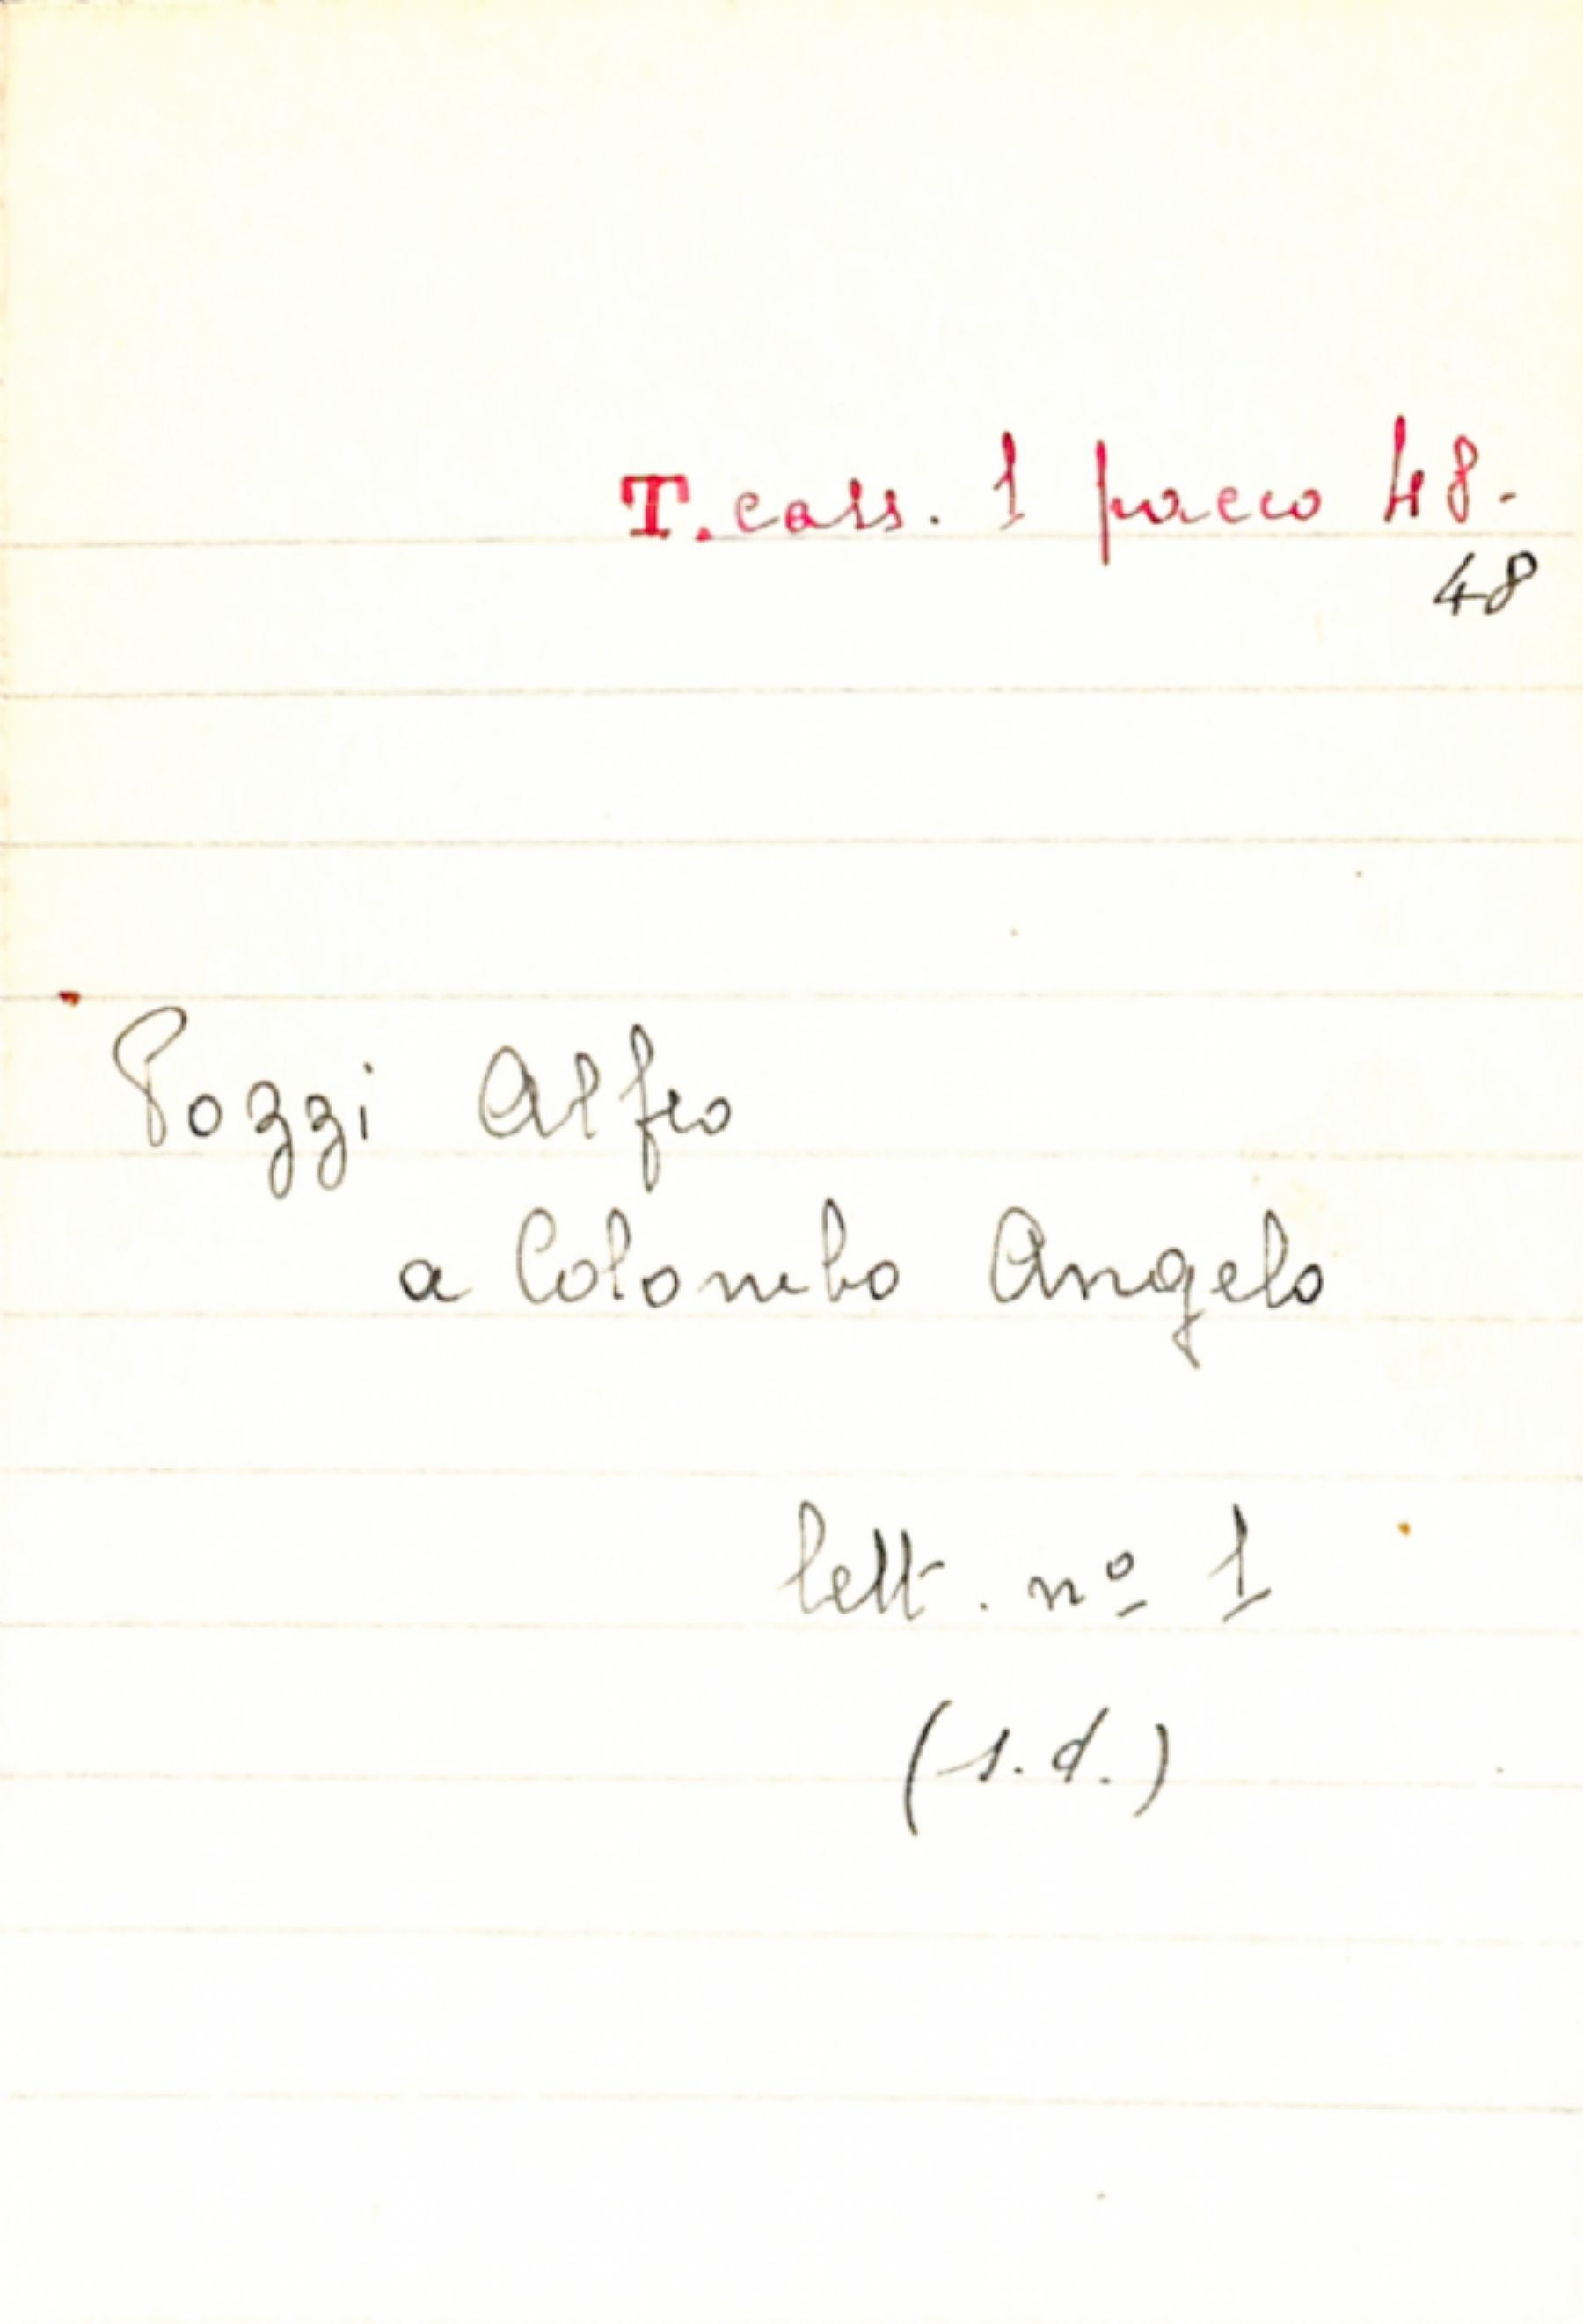 T. cass. 1 pacco 48.
48
Pozzi Alfeo
a Colombo Angelo
lett. nº 1
(s.d.)